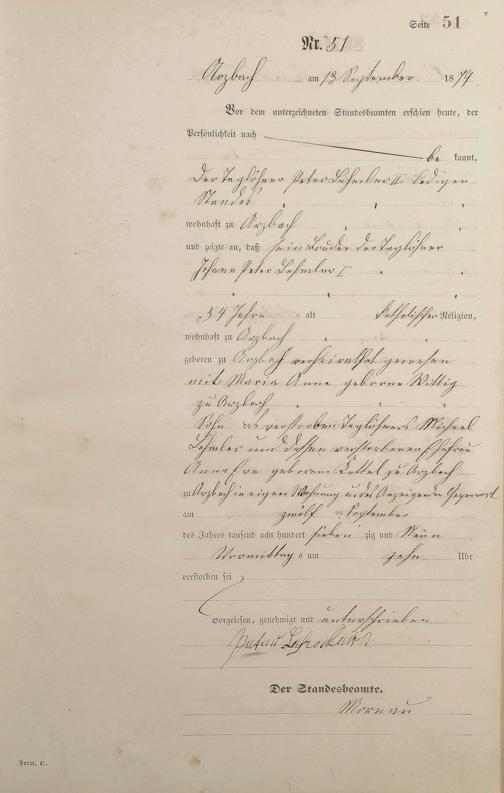 Seite 51
Nr. 51
Arzbach am 13 September 1879
Vor dem unterzeichneten Standesbeamten erschien heute, der
Persönlichkeit nach
be kannt,
der Taglöhner Peter Lehmler II ledigen
Standes
wohnhaft zu Arzbach
und zeigte an, daß sein Bruder der Taglöhner
Johann Peter Lehmler I
54 Jahre alt katholischer Religion,
wohnhaft zu Arzbach
geboren zu Arzbach verheirathet gewesen
mit Maria Anna geborne Wittig
zu Arzbach
Sohn des verstorben Taglöhners Michael
Lehmler und dessen verstorbenen Ehefrau
Anna Eva geborene Kettel zu Arzbach
zu Arzbach in eigener Wohnung in des Anzeigenden Gegenwart
am zwölf ten September
des Jahres tausend acht hundert sieben zig und Neun
Vormittag s um zehn Uhr
verstorben sei
Vorgelesen, genehmigt und unterschrieben
Der Standesbeamte.
Form. C.